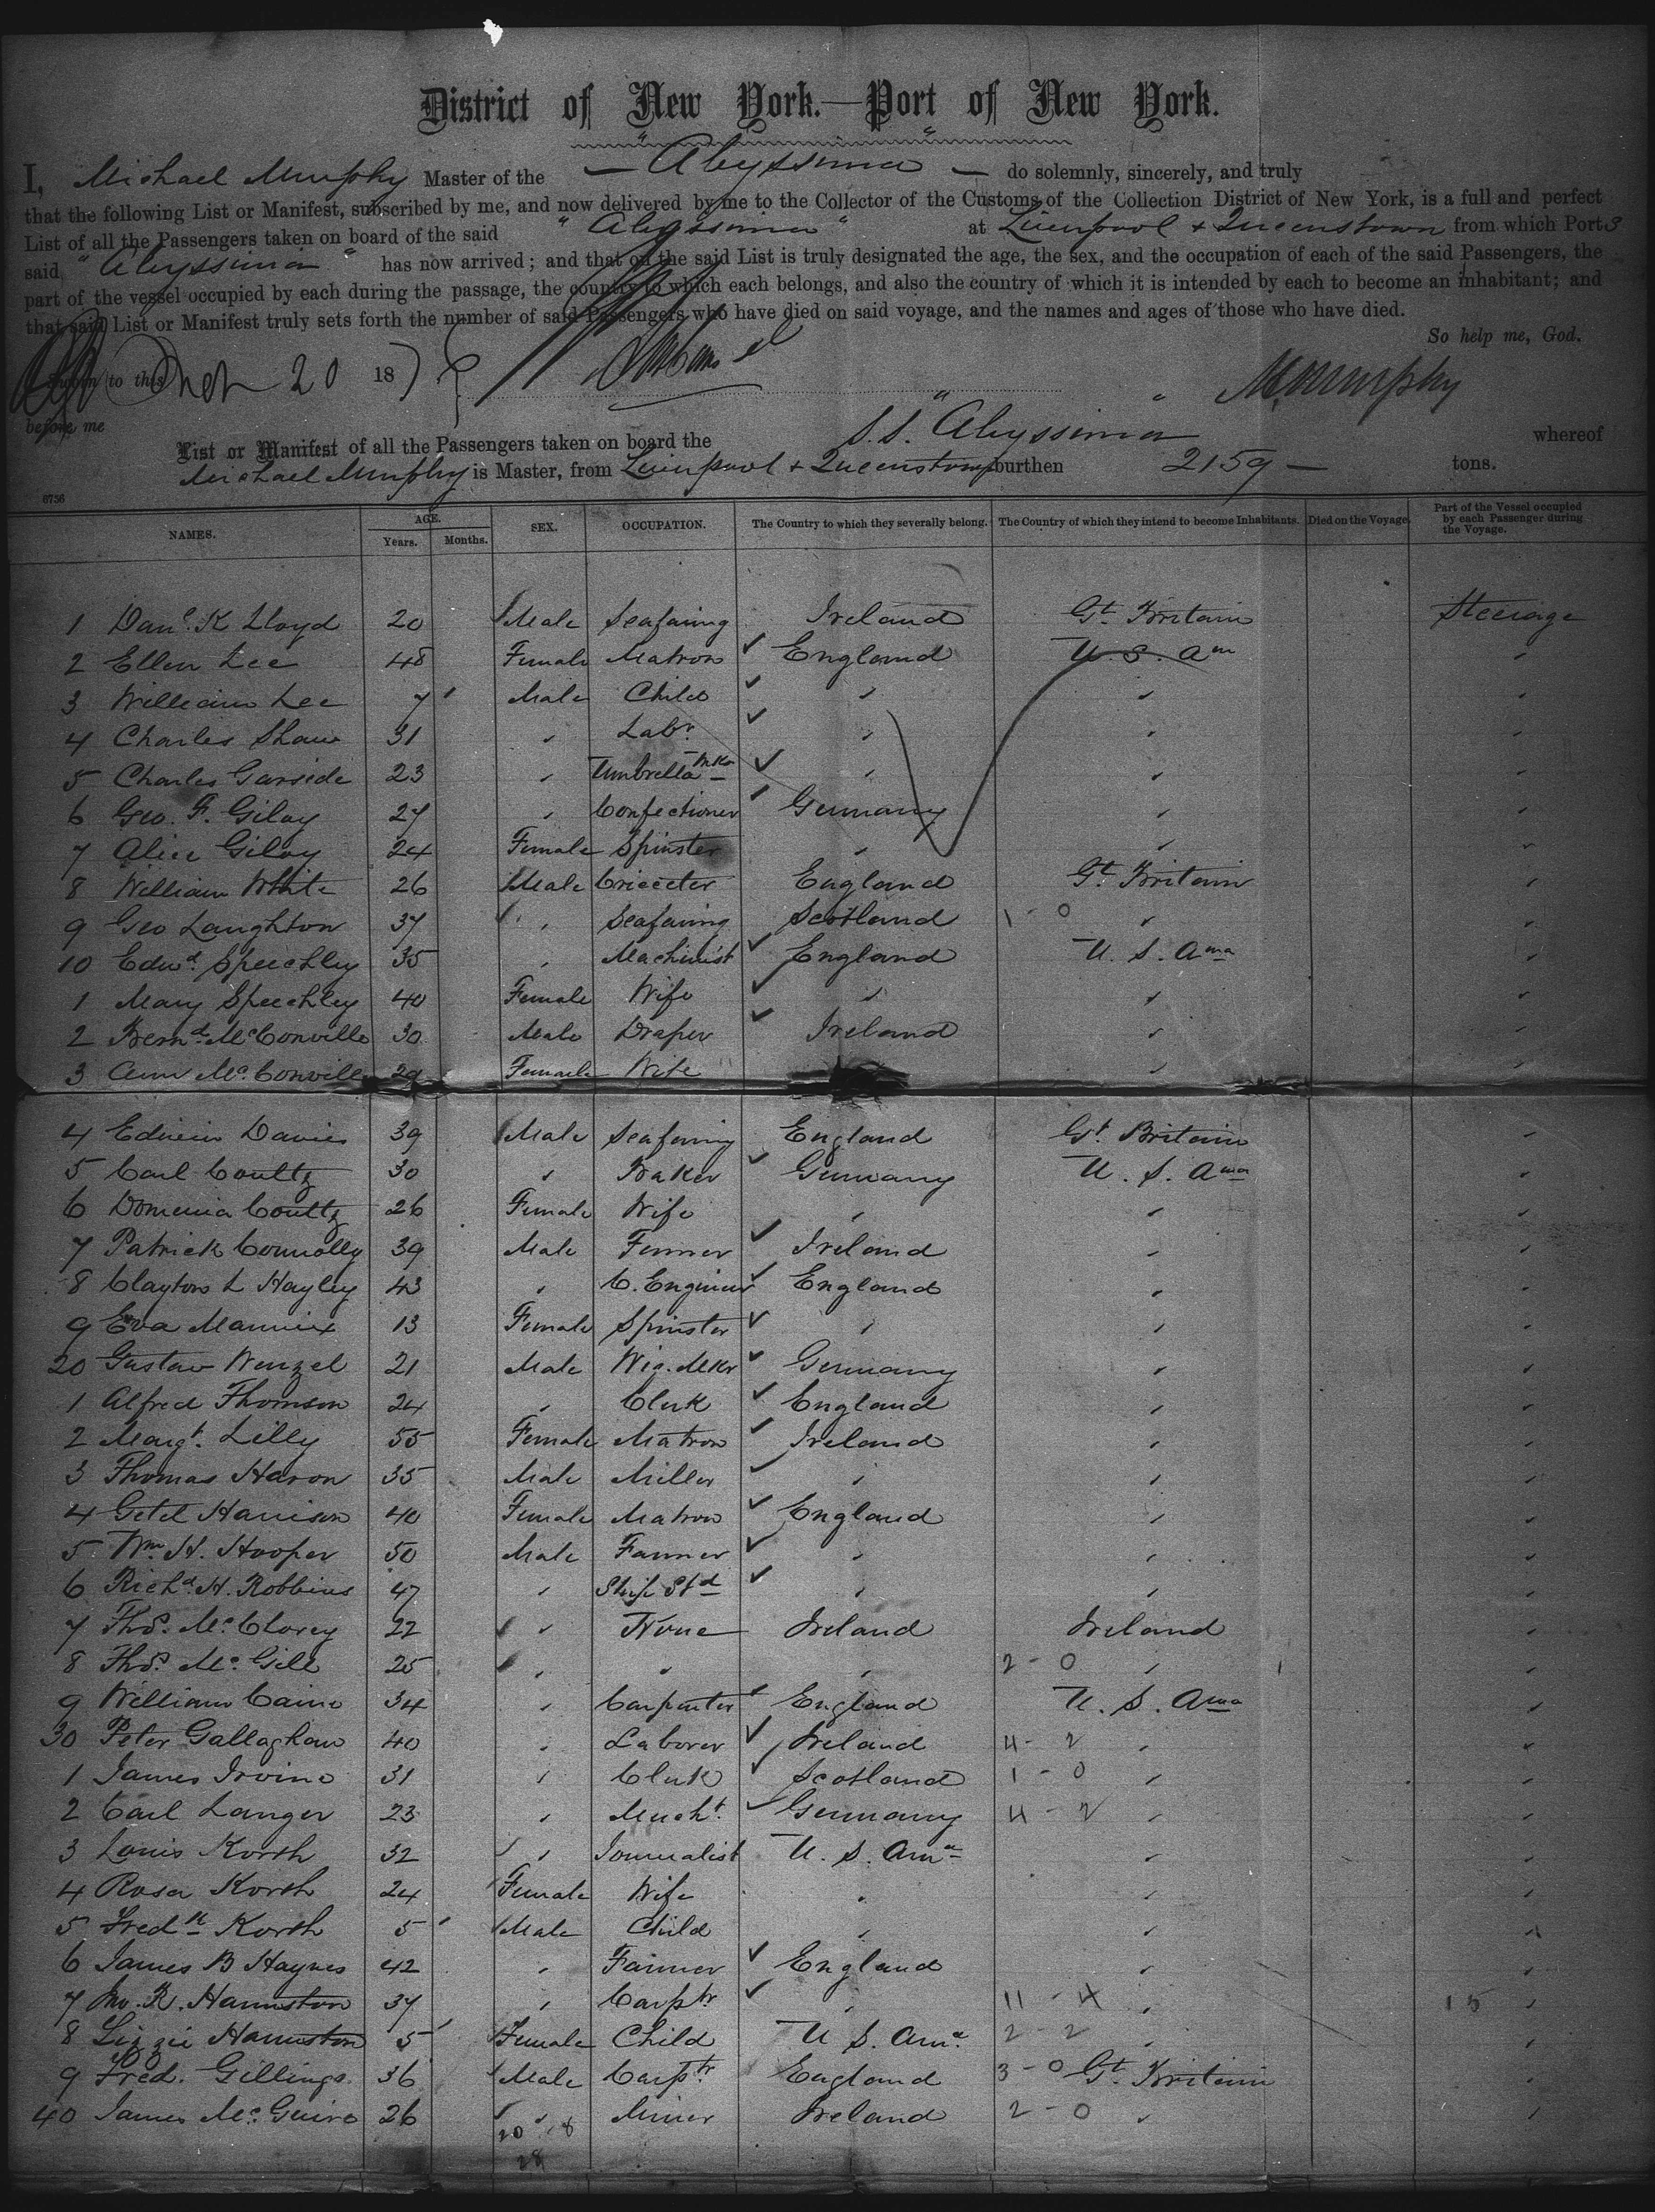 District of New York.—Port of New York.
I, Michael Murphy Master of the — "Abyssinia" — do solemnly, sincerely, and truly
that the following List or Manifest, subscribed by me, and now delivered by me to the Collector of the Customs of the Collection District of New York, is a full and perfect
List of all the Passengers taken on board of the said "Abyssinia" at Liverpool + Queenstown from which Ports
said "Abyssinia" has now arrived; and that on the said List is truly designated the age, the sex, and the occupation of each of the said Passengers, the
part of the vessel occupied by each during the passage, the country to which each belongs, and also the country of which it is intended by each to become an inhabitant; and
that said List or Manifest truly sets forth the number of said Passengers who have died on said voyage, and the names and ages of those who have died.
So help me, God.
Sworn to this 20 187 M. Murphy
before me
List or Manifest of all the Passengers taken on board the S.S. "Abyssinia" whereof
Michael Murphy is Master, from Liverpool + Queenstown burthen 2159 — tons.
6756
NAMES. AGE. Years. Months. SEX. OCCUPATION. The Country to which they severally belong. The Country of which they intend to become Inhabitants. Died on the Voyage. Part of the Vessel occupied by each Passenger during the Voyage.
1 Danl. K Lloyd 20 Male Seafaring Ireland Gt. Britain Steerage
2 Ellen Lee 48 Female Matron England U. S. Am "
3 William Lee 7 Male Child " " "
4 Charles Shaw 31 " Labr. " " "
5 Charles Garside 23 " Umbrella Mkr " " "
6 Geo. F. Giloy 27 " Confectioner Germany " "
7 Alice Giloy 24 Female Spinster " " "
8 William White 26 Male Cricceter England Gt. Britain "
9 Geo Laughton 37 " Seafaring Scotland 1 - 0 " "
10 Edwd. Speechley 35 " Machinist England U. S. Ama "
1 Mary Speechley 40 Female Wife " " "
2 Bernd. McConville 30 Male Draper Ireland " "
3 Ann McConville 29 Female Wife " "
4 Edwin Davies 39 Male Seafaring England Gt. Britain "
5 Carl Coultz 30 " Baker Germany U. S. Ama "
6 Domenia Coultz 26 Female Wife " " "
7 Patrick Connolly 39 Male Farmer Ireland " "
8 Clayton L Hayley 43 " C. Engineer England " "
9 Eva Mannix 13 Female Spinster " " "
20 Gustav Wenzel 21 Male Wig. Mkr Germany " "
1 Alfred Thomson 24 " Clerk England " "
2 Margt. Lilly 55 Female Matron Ireland " "
3 Thomas Haron 35 Male Miller " " "
4 Getel Harrison 40 Female Matron England " "
5 Wm. H. Hooper 50 Male Farmer " " "
6 Richd. H. Robbins 47 " Ship Std " " "
7 Thos. McClorey 22 " None Ireland Ireland "
8 Thos. McGill 25 " " " 2 - 0 " "
9 William Caine 34 " Carpenter England U. S. Ama "
30 Peter Gallaghan 40 " Laborer Ireland 4 - 2 " "
1 James Irvine 31 " Clerk Scotland 1 - 0 " "
2 Carl Langer 23 " Mercht. Germany 4 - 2 " "
3 Louis Korth 32 " Journalist U. S. Ama " "
4 Rosa Korth 24 Female Wife " " "
5 Fredk Korth 5 Male Child " " "
6 James B Haynes 42 " Farmer England " "
7 Jno. R. Harmston 37 " Carptr " 11 - 4 " 15 "
8 Lizzie Harmston 5 Female Child U S. Ama. 2 - 2 " "
9 Fred. Gillings 36 Male Carptr. England 3 - 0 Gt. Britain "
40 James McGuire 26 " Miner Ireland 2 - 0 " "
20 / 8
28